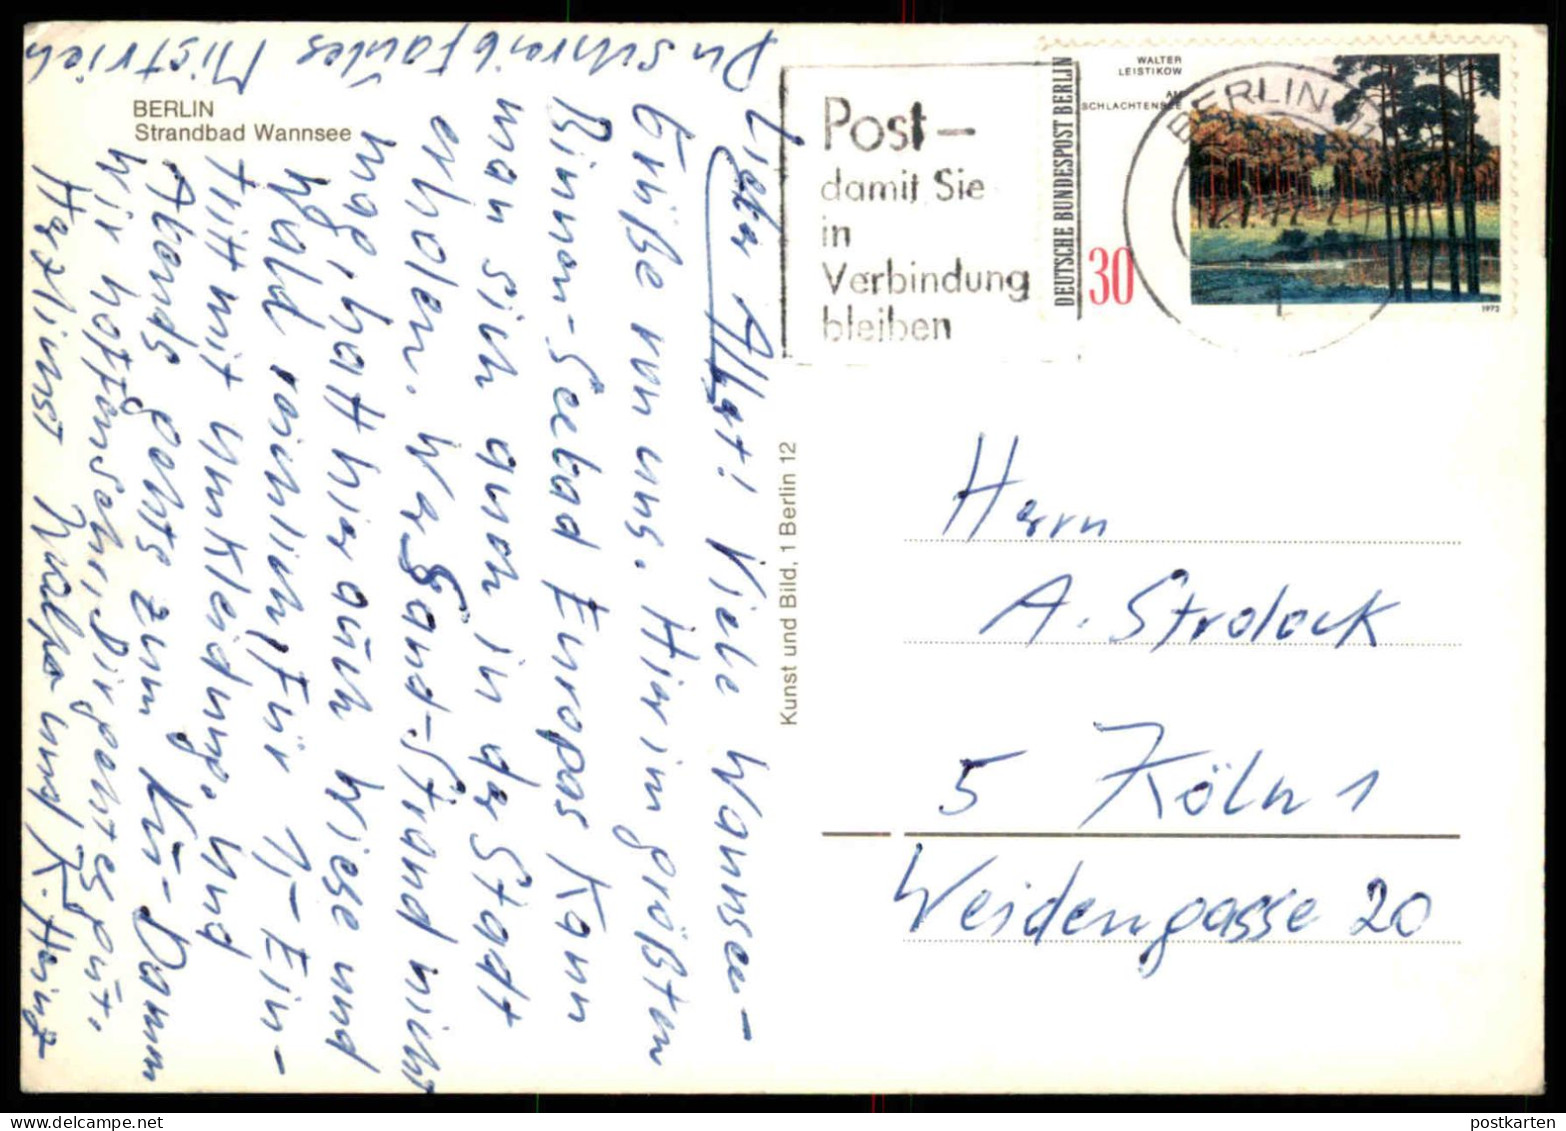 BERLIN
Strandbad Wannsee
Du schreibfaules Mistvieh
Lieber Albert! Viele Wannsee-
Grüße von uns. Hier im größten
Binnen-Seebad Europas kann
man sich auch in der Stadt
erholen. Wer Sand-Strand nicht
mag, hat hier auch Wiese und
Wald reichlich (Für 1,- Ein-
tritt mit Umkleidung. Und
Abends gehts zum Kü-Damm
Wir hoffen sehr, Dir geht es gut.
Herzlichst Walpa und K. Heinz
Kunst und Bild, 1 Berlin 12
Post-
damit Sie
in
Verbindung
bleiben
DEUTSCHE BUNDESPOST BERLIN
WALTER
LEISTIKOW
AM
SCHLACHTENSEE
30
1972
BERLIN 11
Herrn
A. Strolock
5 Köln 1
Weidengasse 20
postkarten